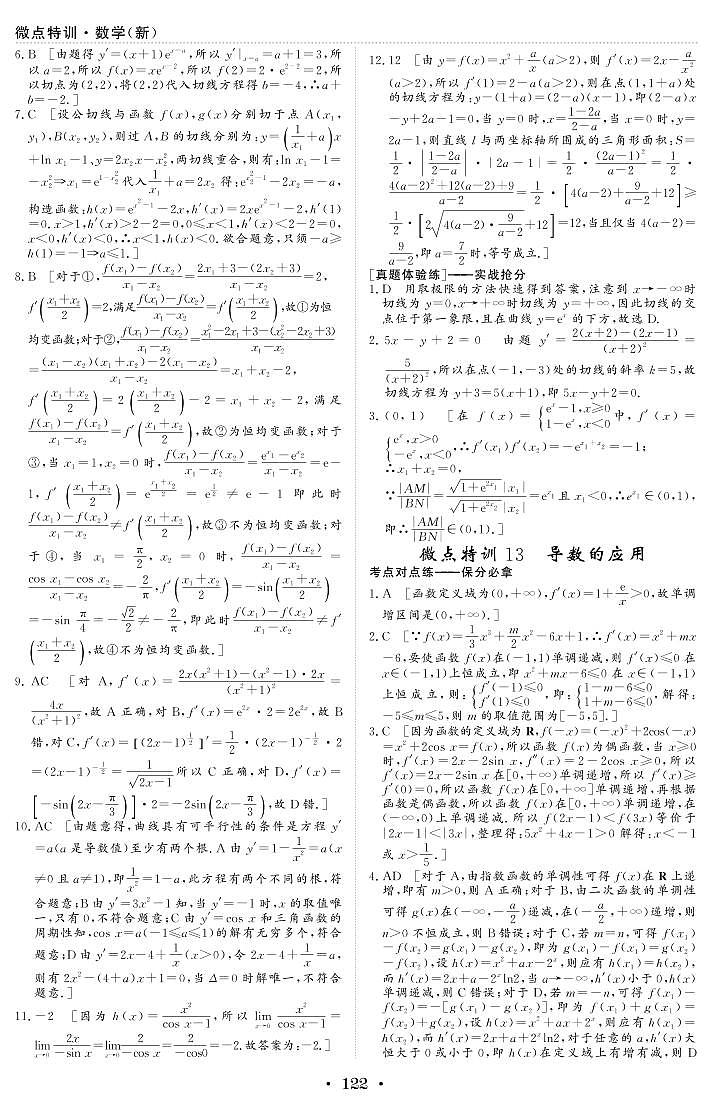 微点特训·数学(新)
6.B [由题得 y′=(x+1)e^{x-a},所以 y′|_{x=a}=a+1=3,所
以 a=2,所以 f(x)=xe^{x-2},所以 f(2)=2·e^{2-2}=2,所
以切点为(2,2),将(2,2)代入切线方程得 b=-4,∴a+
b=-2.]
7.C [设公切线与函数 f(x),g(x)分别切于点 A(x₁,
y₁),B(x₂,y₂),则过 A,B 的切线分别为:y=(1/x₁+a)x
+ln x₁-1,y=2x₂x-x₂²,两切线重合,则有:ln x₁-1=
-x₂²⇒x₁=e^{1-x₂²}代入1/x₁+a=2x₂ 得:e^{x₂²-1}-2x₂=-a,
构造函数:h(x)=e^{x²-1}-2x,h′(x)=2xe^{x²-1}-2,h′(1)
=0.x>1,h′(x)>2-2=0,0≤x<1,h′(x)<2-2=0,
x<0,h′(x)<0,∴x<1,h(x)<0.欲合题意,只须-a≥
h(1)=-1⇒a≤1.]
8.B [对于①,(f(x₁)-f(x₂))/(x₁-x₂)=(2x₁+3-(2x₂+3))/(x₁-x₂)=2,
f′((x₁+x₂)/2)=2,满足(f(x₁)-f(x₂))/(x₁-x₂)=f′((x₁+x₂)/2),故①为恒
均变函数;对于②,(f(x₁)-f(x₂))/(x₁-x₂)=(x₁²-2x₁+3-(x₂²-2x₂+3))/(x₁-x₂)
=((x₁-x₂)(x₁+x₂)-2(x₁-x₂))/(x₁-x₂)=x₁+x₂-2,
f′((x₁+x₂)/2)=2((x₁+x₂)/2)-2=x₁+x₂-2,满足
(f(x₁)-f(x₂))/(x₁-x₂)=f′((x₁+x₂)/2),故②为恒均变函数;对于
③,当 x₁=1,x₂=0 时,(f(x₁)-f(x₂))/(x₁-x₂)=(e^{x₁}-e^{x₂})/(x₁-x₂)=e-
1,f′((x₁+x₂)/2)=e^{(x₁+x₂)/2}=e^{1/2}≠e-1 即此时
(f(x₁)-f(x₂))/(x₁-x₂)≠f′((x₁+x₂)/2),故③不为恒均变函数;对
于④,当 x₁=π/2,x₂=0 时,(f(x₁)-f(x₂))/(x₁-x₂)=
(cos x₁-cos x₂)/(x₁-x₂)=-2/π,f′((x₁+x₂)/2)=-sin((x₁+x₂)/2)
=-sin π/4=-√2/2≠-2/π,即此时(f(x₁)-f(x₂))/(x₁-x₂)≠f′
((x₁+x₂)/2),故④不为恒均变函数.]
9.AC [对 A,f′(x)=(2x(x²+1)-(x²-1)·2x)/(x²+1)²=
4x/(x²+1)²,故 A 正确,对 B,f′(x)=e^{2x}·2=2e^{2x},故 B
错,对 C,f′(x)=[(2x-1)^{1/2}]′=1/2·(2x-1)^{-1/2}·2
=(2x-1)^{-1/2}=1/√(2x-1)所以 C 正确,对 D,f′(x)=
[-sin(2x-π/3)]·2=-2sin(2x-π/3),故 D 错.]
10.AC [由题意得,曲线具有可平行性的条件是方程 y′
=a(a 是导数值)至少有两个根.A 由 y′=1-1/x²=a(x
≠0 且 a≠1),即1/x²=1-a,此方程有两个不同的根,符
合题意;B 由 y′=3x²-1 知,当 y′=-1 时,x 的取值唯
一,只有 0,不符合题意;C 由 y′=cos x 和三角函数的
周期性知,cos x=a(-1≤a≤1)的解有无穷多个,符合
题意;D 由 y′=2x-4+1/x(x>0),令 2x-4+1/x=a,
则有 2x²-(4+a)x+1=0,当 Δ=0 时解唯一,不符合
题意.]
11.-2 [因为 h(x)=x²/(cos x-1),所以 lim_{x→0} x²/(cos x-1)=
lim_{x→0} 2x/(-sin x)=lim_{x→0} 2/(-cos x)=2/(-cos0)=-2.故答案为:-2.]
12.12 [由 y=f(x)=x²+a/x(a>2),则 f′(x)=2x-a/x²
(a>2),所以 f′(1)=2-a(a>2),则在点(1,1+a)处
的切线方程为:y-(1+a)=(2-a)(x-1),即(2-a)x
-y+2a-1=0,当 y=0 时,x=(1-2a)/(2-a),当 x=0 时,y=
2a-1,则直线 l 与两坐标轴所围成的三角形面积:S=
1/2·|(1-2a)/(2-a)|·|2a-1|=1/2·(2a-1)²/(a-2)=1/2·
(4(a-2)²+12(a-2)+9)/(a-2)=1/2·[4(a-2)+9/(a-2)+12]≥
1/2·[2√(4(a-2)·9/(a-2))+12]=12,当且仅当 4(a-2)=
9/(a-2),即 a=7/2时,等号成立.]
[真题体验练]——实战抢分
1.D 用取极限的方法快速得到答案,注意到 x→-∞时
切线为 y=0,x→+∞时切线为 y=+∞,因此切线的交
点位于第一象限,且在曲线 y=eˣ 的下方,故选 D.
2.5x-y+2=0 由题 y′=(2(x+2)-(2x-1))/(x+2)²=
5/(x+2)²,所以在点(-1,-3)处的切线的斜率 k=5,故
切线方程为 y+3=5(x+1),即 5x-y+2=0.
3.(0,1) [在 f(x)={eˣ-1,x≥0 1-eˣ,x<0 中,f′(x)=
{eˣ,x>0 -eˣ,x<0,∴f′(x₁)f′(x₂)=-e^{x₁+x₂}=-1;
∴x₁+x₂=0,
∵|AM|/|BN|=√(1+e^{2x₁})|x₁|/√(1+e^{2x₂})|x₂|=e^{x₁}且 x₁<0,∴e^{x₁}∈(0,1),
即∴|AM|/|BN|∈(0,1).]
微点特训 13 导数的应用
考点对点练——保分必拿
1.A [函数定义域为(0,+∞),f′(x)=1+e/x>0,故单调
增区间是(0,+∞).]
2.C [∵f(x)=1/3x³+m/2x²-6x+1,∴f′(x)=x²+mx
-6,要使函数 f(x)在(-1,1)单调递减,则 f′(x)≤0 在
x∈(-1,1)上恒成立,即 x²+mx-6≤0 在 x∈(-1,1)
上恒成立,则:{f′(-1)≤0 f′(1)≤0,即:{1-m-6≤0 1+m-6≤0,解得:
-5≤m≤5,则 m 的取值范围为[-5,5].]
3.C [因为函数的定义域为 R,f(-x)=(-x)²+2cos(-x)
=x²+2cos x=f(x),所以函数 f(x)为偶函数,当 x≥0
时,f′(x)=2x-2sin x,f″(x)=2-2cos x≥0,所以
f′(x)=2x-2sin x 在[0,+∞)单调递增,所以 f′(x)≥
f′(0)=0,所以函数 f(x)在[0,+∞]单调递增,再根据
函数是偶函数,所以函数 f(x)在[0,+∞)单调递增,在
(-∞,0)上单调递减.所以 f(2x-1)<f(3x)等价于
|2x-1|<|3x|,整理得:5x²+4x-1>0 解得:x<-1
或 x>1/5.]
4.AD [对于 A,由指数函数的单调性可得 f(x)在 R 上递
增,即有 m>0,则 A 正确;对于 B,由二次函数的单调性
可得 g(x)在(-∞,-a/2)递减,在(-a/2,+∞)递增,则
n>0 不恒成立,则 B 错误;对于 C,若 m=n,可得 f(x₁)
-f(x₂)=g(x₁)-g(x₂),即为 g(x₁)-f(x₁)=g(x₂)
-f(x₂),设 h(x)=x²+ax-2ˣ,则应有 h(x₁)=h(x₂),
而 h′(x)=2x+a-2ˣln2,当 a→-∞,h′(x)小于 0,h(x)
单调递减,则 C 错误;对于 D,若 m=-n,可得 f(x₁)-
f(x₂)=-[g(x₁)-g(x₂)],即为 f(x₁)+g(x₁)=
f(x₂)+g(x₂),设 h(x)=x²+ax+2ˣ,则应有 h(x₁)=
h(x₂),而 h′(x)=2x+a+2ˣln2,对于任意的 a,h′(x)大
恒大于 0 或小于 0,即 h(x)在定义域上有增有减,则 D
·122·